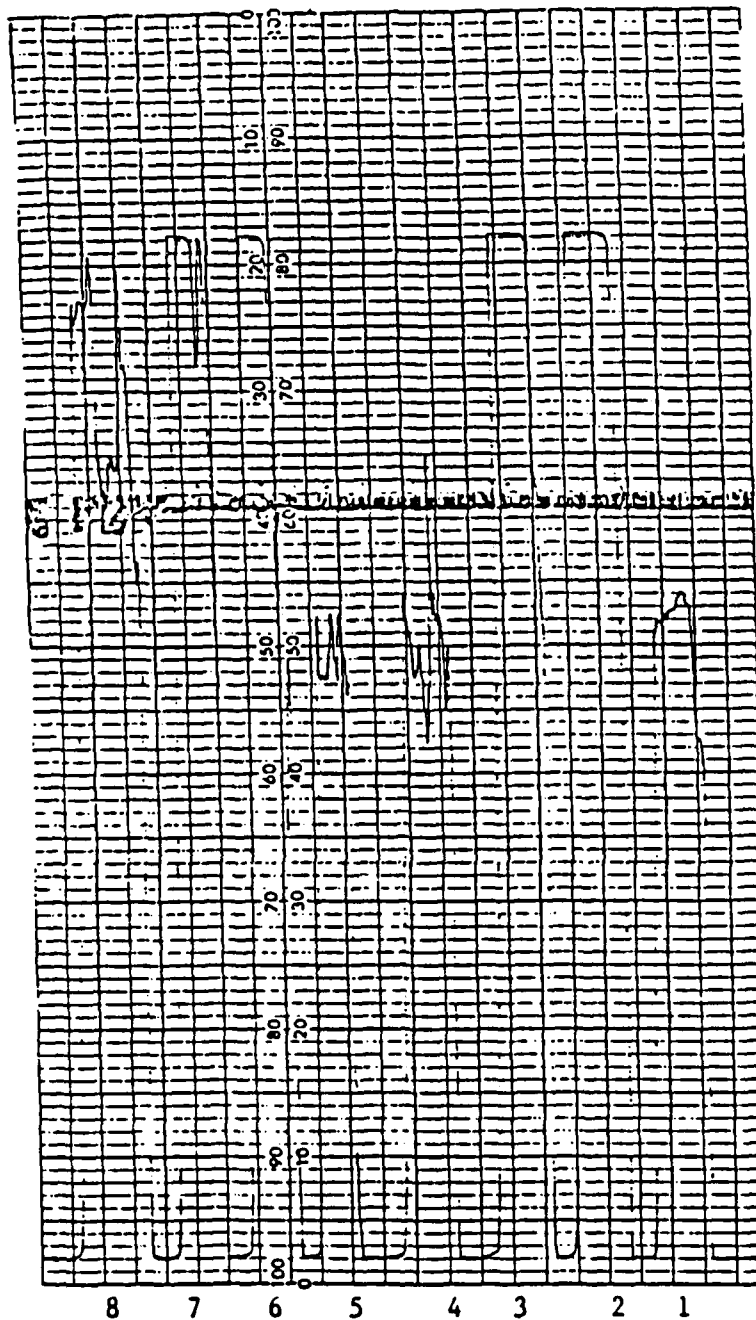 0 100
10 90
20 80
30 70
40 60
50 50
60 40
70 30
80 20
90 10
100 0
8 7 6 5 4 3 2 1